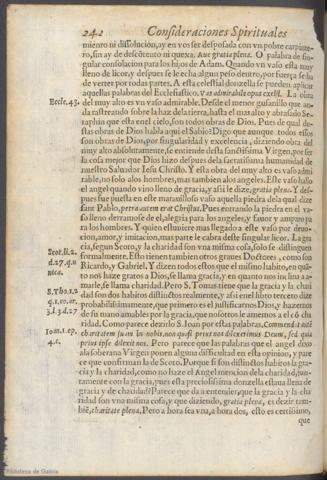 242 Consideraciones Spirituales
miento ni dissolución, ay en vos ser desposada con vn pobre carpinte-
ro, sin ay de descõtento ni quexa. Aue gratia plena. O palabra de sin-
gular consolacion para los hijos de Adam. Quando vn vaso està muy
lleno de licor, y despues se le echa algun peso dentro, por fuerça se ha
de verter por todas partes. A esta celestial donzella se pueden aplicar
aquellas palabras del Ecclesiastico, Vas admirabile opus excelsi. La obra
Eccle. 43. del muy alto es vn vaso admirable. Desde el menor gusanillo que an-
da rastreando sobre la haz de la tierra, hasta el mas alto y abrasado Se-
raphin que està en el cielo, son todos obras de Dios. Pues de qual de-
stas obras de Dios habla aqui el Sabio? Digo que aunque todos essos
son obras de Dios, por singularidad y excelencia, diziendo obra del
muy alto absolutamente, se entiende desta sanctissima Virgen, por ser
la cosa mejor que Dios hizo despues de la sacratissima humanidad de
nuestro Saluador Iesu Christo. Y esta obra del muy alto es vaso admi
rable, no solo a los hombres, mas tambien a los angeles. Este vaso hallo
el angel quando vino lleno de gracia, y assi le dize, gratia plena. Y des-
pues fue puesta en este marauilloso vaso aquella piedra de la qual dize
sant Pablo, petra autem erat Christus. Pues entrando la piedra en el va-
so lleno derramose de el, alegria para los angeles, y fauor y amparo pa
ra los hombres. Y quien estuuiere mas llegado a este vaso por deuo-
cion, amor, y imitacion, mas parte le cabra deste singular licor. La gra
cia, segun Scoto, y la charidad son vna misma cosa, solo se distinguen
Scot. li. 2. formalmente. Esto tienen tambien otros graues Doctores, como son
d. 27. q. v Ricardo, y Gabriel, Y dizen todos estos que el mismo habito, en quã-
nica. to nos haze gratos a Dios, se llama gracia, y en quanto nos inclina a a-
marle, se llama charidad. Pero S. Tomas tiene que la gracia y la chari
S. Tho. 1. 2 dad son dos habitos distinctos realmente, y assi en el libro tercero dize
q. 1. 10. ar. probabilissimamente, que primero es el justificarnos Dios, y hazernos
3. l. 3. d. 27 de su mano amables por la gracia, que nosotros le amemos a el cõ cha
ridad. Como parece dezirlo S. Ioan por estas palabras, Commendat autẽ
Ioan. 1. ep. charitatem suam in nobis, non quasi prius nos dilexerimus Deum, sed quia
4. c. prius ipse dilexit nos. Pero parece que las palabras que el angel dixo
a la soberana Virgen ponen alguna difficultad en esta opinion, y pare
ce que confirman la de Scoto. Porque si son distinctos habitos la gra-
cia y la charidad, como no haze el Angel mencion de la charidad, jun-
tamente con la gracia, pues esta preciosissima donzella estaua llena de
gracia y de charidad? Parece que da a entender, que la gracia y la cha
ridad son vna misma cosa, y que diziendo, gratia plena, es dezir tam-
bié, charitate plena. Pero a hora sea vna, a hora dos, esto es certissimo,
que
Biblioteca de Galicia